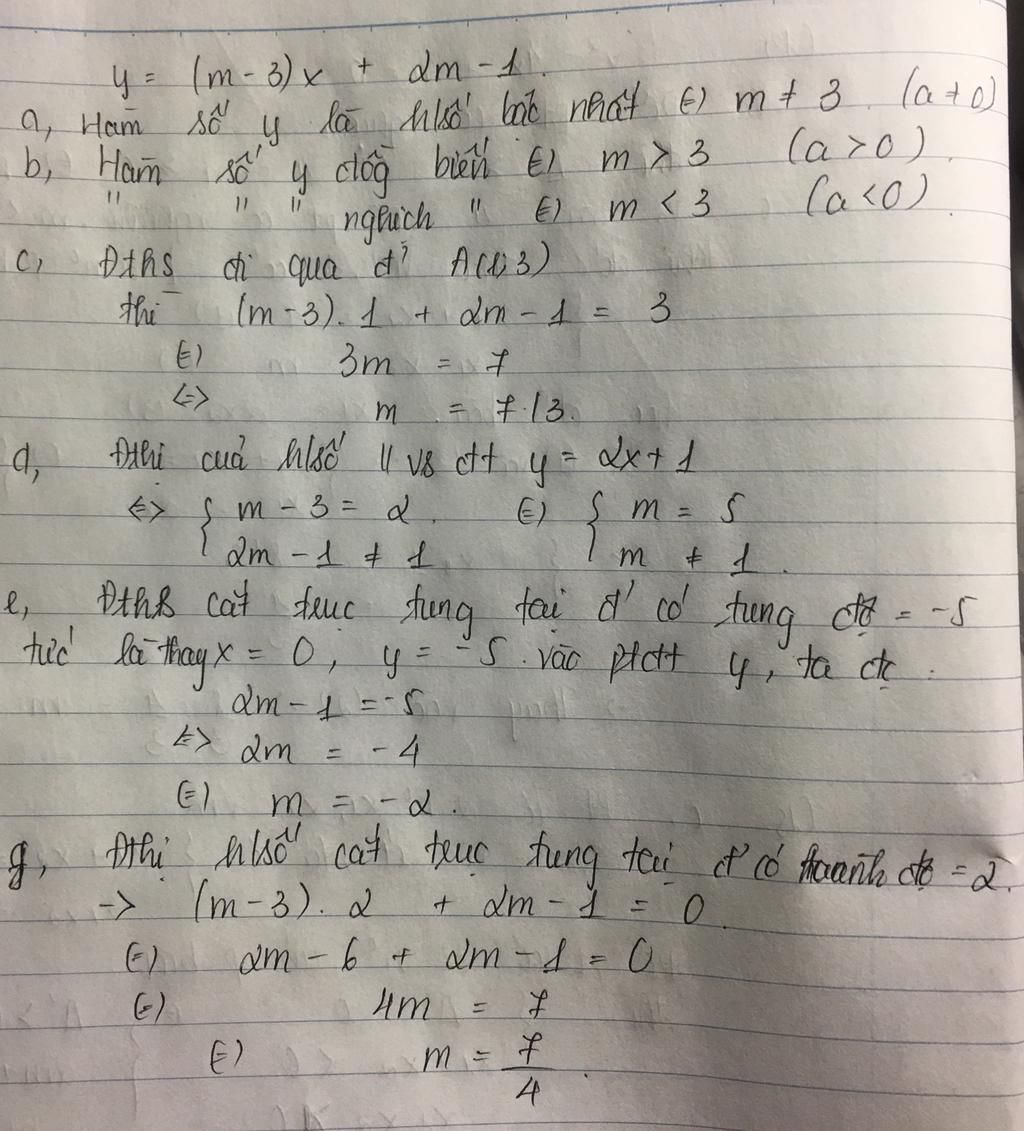 y = (m-3)x + 2m-1.
a, Hàm số y là h/số bậc nhất <=> m ≠ 3. (a ≠ 0)
b, Hàm số y đồg biến <=> m > 3 (a > 0).
" " " nghịch " <=> m < 3 (a < 0).
c, Đths đi qua đ' A(1;3)
thì (m-3).1 + 2m-1 = 3
<=> 3m = 7
<=> m = 7/3.
d, Đthị cuả h/số // vs đtt y = 2x+1
<=> { m-3 = 2. <=> { m = 5
{ 2m-1 ≠ 1 { m ≠ 1.
e, Đths cắt trục tung tại đ' có tung độ = -5
tức là thay x = 0, y = -5 vào ptđtt y, ta đc.
2m-1 = -5
<=> 2m = -4
<=> m = -2.
g, Đthị h/số cắt trục tung tại đ' có hoành độ = 2.
-> (m-3).2 + 2m-1 = 0.
<=> 2m-6 + 2m-1 = 0
<=> 4m = 7
<=> m = 7/4.